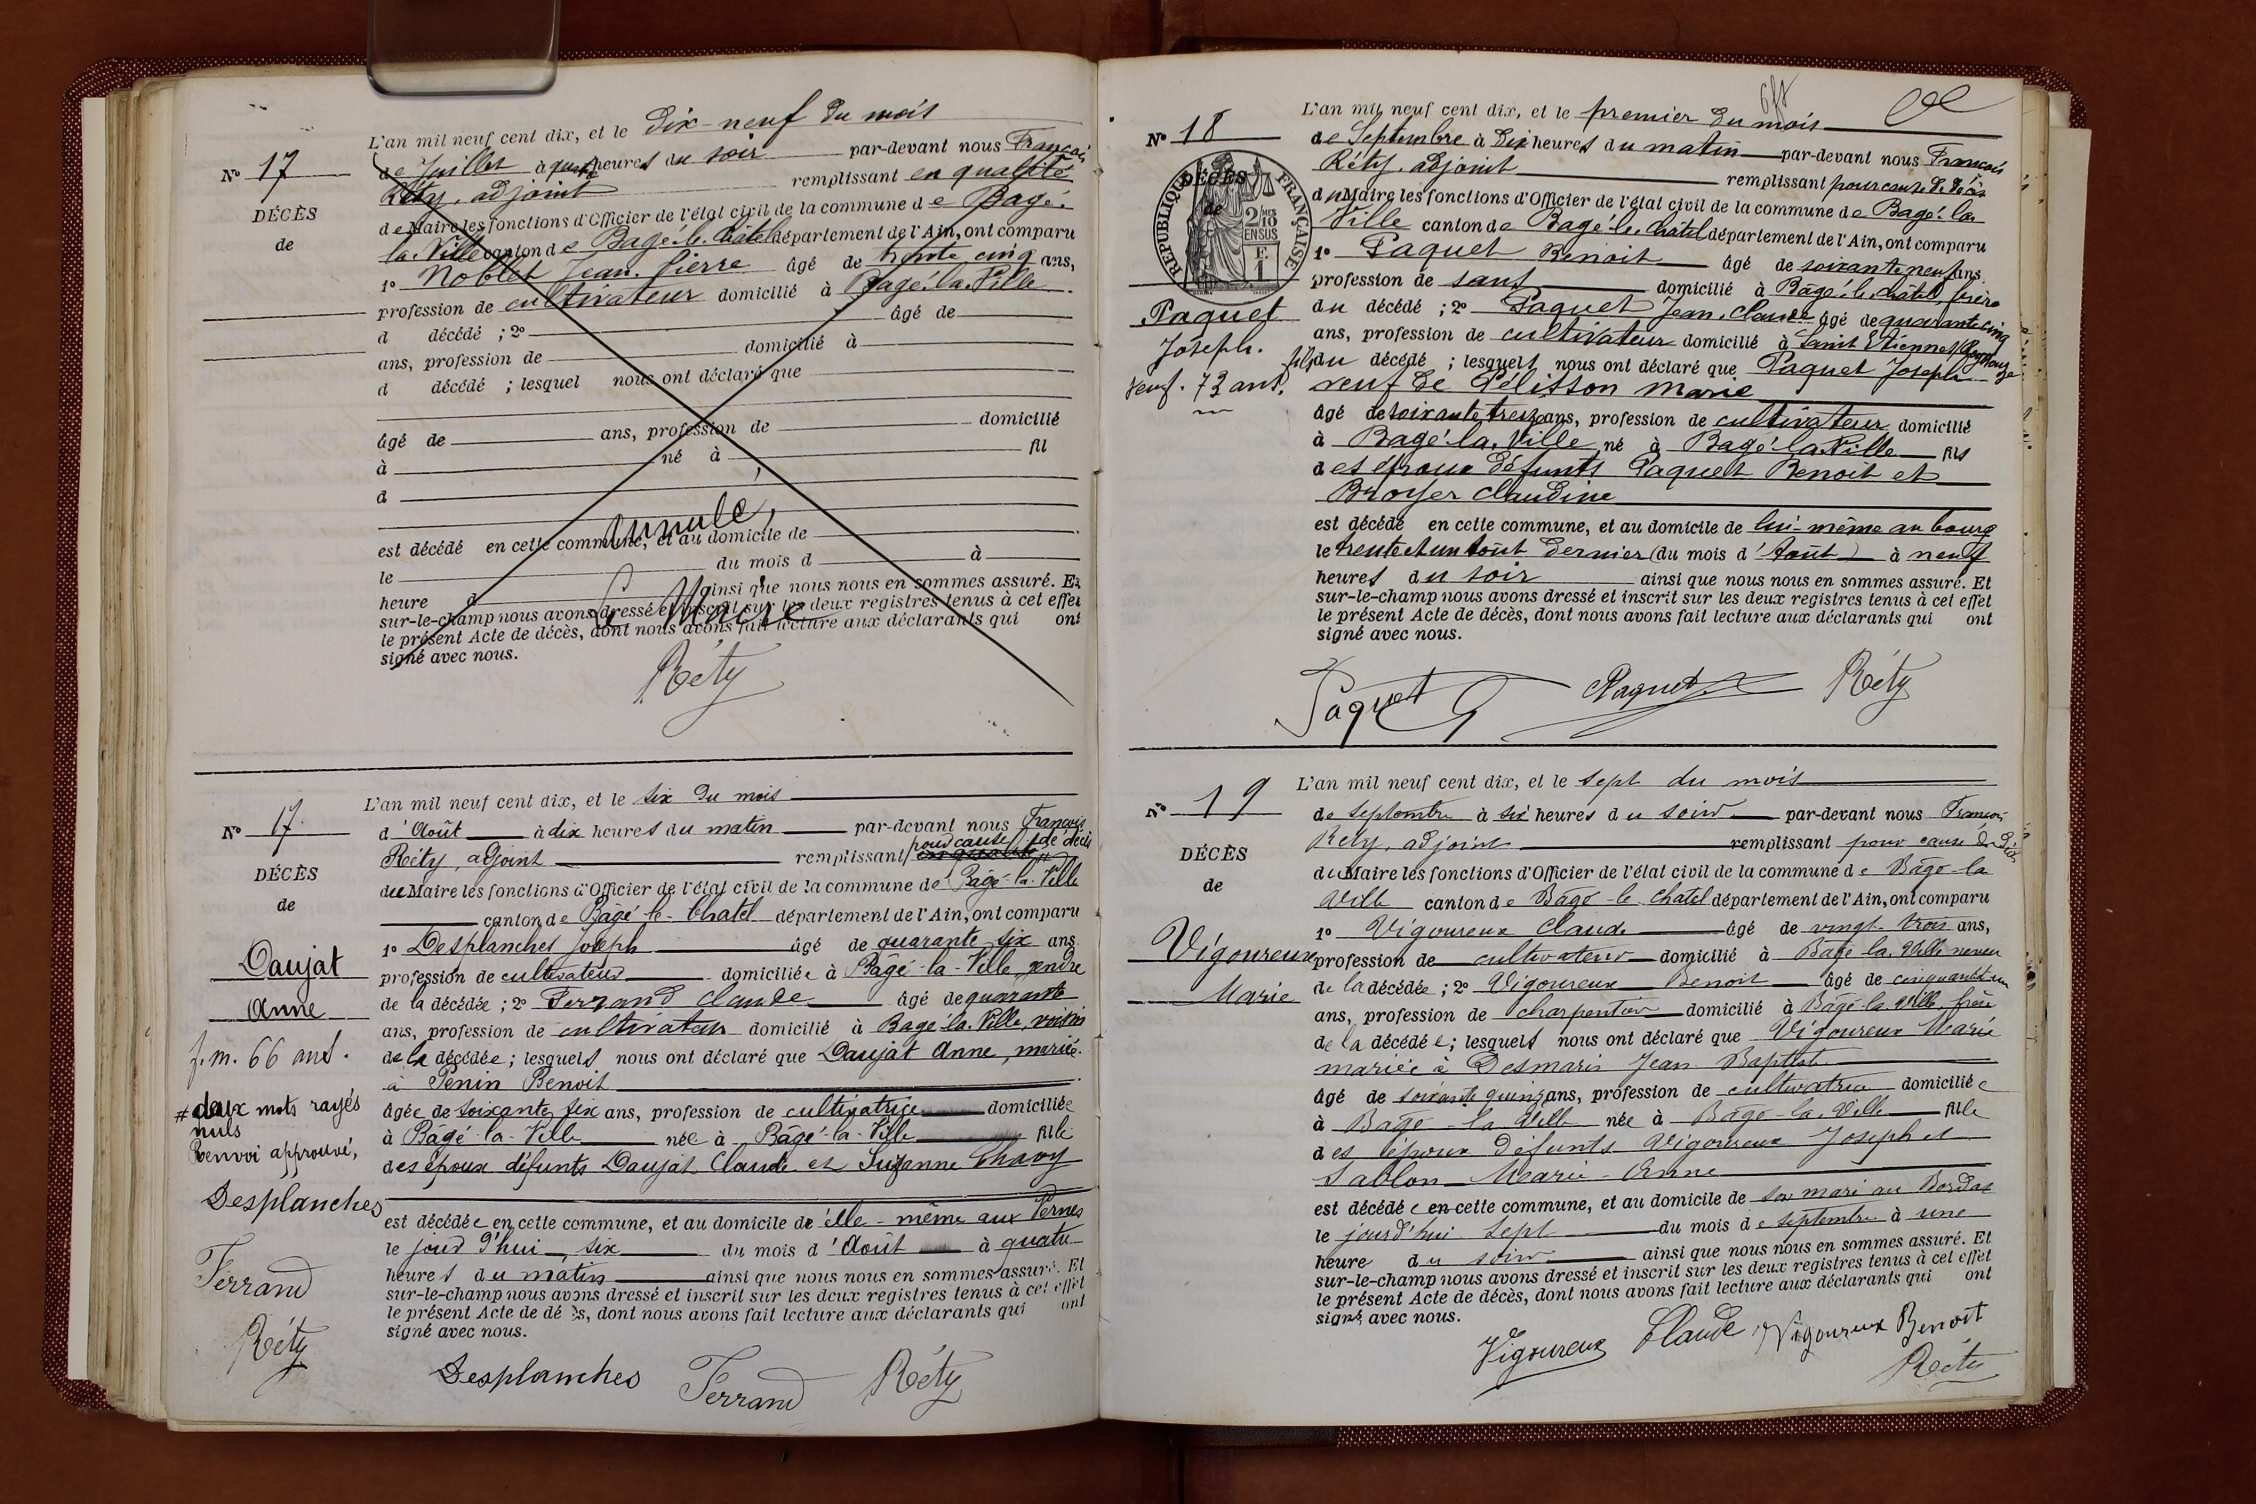 L'an mil neuf cent dix, et le dix-neuf du mois
N° 17
de Juillet à quatre heures du soir par-devant nous François
Réty, adjoint remplissant en qualité
DÉCÈS
de
de Maire les fonctions d'Officier de l'état civil de la commune de Bagé-
la-Ville canton de Bagé-le-Châtel département de l'Ain, ont comparu
1° Noblet Jean-Pierre âgé de trente cinq ans,
profession de cultivateur domicilié à Bagé-la-Ville
d décédé ; 2° âgé de
ans, profession de domicilié à
d décédé ; lesquel nous ont déclaré que
âgé de ans, profession de domicilié
à né à fil
d
Annulé,
est décédé en cette commune, et au domicile de
le du mois d à
heure d ainsi que nous nous en sommes assuré. Et
Le Maire
sur-le-champ nous avons dressé et inscrit sur les deux registres tenus à cet effet
le présent Acte de décès, dont nous avons fait lecture aux déclarants qui ont
signé avec nous.
Réty
L'an mil neuf cent dix, et le six du mois
N° 17.
d'Août à dix heures du matin par-devant nous François
Réty, adjoint remplissant pour cause de décès
DÉCÈS
de
du Maire les fonctions d'Officier de l'état civil de la commune de Bâgé-la-Ville
canton de Bâgé-le-Chatel département de l'Ain, ont comparu
Daujat
Anne
f. m. 66 ans.
1° Desplanches Joseph âgé de quarante six ans
profession de cultivateur domicilié à Bâgé-la-Ville gendre
de la décédée ; 2° Ferrand Claude âgé de quarante
ans, profession de cultivateur domicilié à Bagé-la-Ville, voisin
de la décédée ; lesquels nous ont déclaré que Daujat Anne, mariée
à Penin Benoit
# deux mots rayés
nuls
Renvoi approuvé,
Desplanches
Ferrand
Réty
âgée de soixante six ans, profession de cultivatrice domiciliée
à Bâgé-la-Ville née à Bâgé-la-Ville fille
des époux défunts Daujat Claude et Suzanne Chavy
est décédée en cette commune, et au domicile de elle-même aux Vernes
le jour d'hui six du mois d'Août à quatre
heures du matin ainsi que nous nous en sommes assuré. Et
sur-le-champ nous avons dressé et inscrit sur les deux registres tenus à cet effet
le présent Acte de décès, dont nous avons fait lecture aux déclarants qui ont
signé avec nous.
Desplanches Ferrand Réty
L'an mil neuf cent dix, et le premier du mois
N° 18
de Septembre à Dix heures du matin par-devant nous François
Réty, adjoint remplissant pour cause de décès
DÉCÈS
de
RÉPUBLIQUE FRANÇAISE
2/10 EN SUS
F. 1
du Maire les fonctions d'Officier de l'état civil de la commune de Bagé-la
Ville canton de Bagé-le-Châtel département de l'Ain, ont comparu
1° Paquet Benoit âgé de soixante neuf ans
profession de sans domicilié à Bâgé-le-Châtel, frère
Paquet
Joseph.
veuf. 73 ans.
du décédé ; 2° Paquet Jean-Claude âgé de quarante cinq
ans, profession de cultivateur domicilié à Saint Etienne s/ Reyssouze
fils du décédé ; lesquels nous ont déclaré que Paquet Joseph
veuf de Pélisson Marie
âgé de soixante treize ans, profession de cultivateur domicilié
à Bagé-la-Ville né à Bagé-la-Ville fils
des époux défunts Paquet Benoit et
Broyer Claudine
est décédé en cette commune, et au domicile de lui-même au bourg
le trente et un août dernier (du mois d'Août) à neuf
heures du soir ainsi que nous nous en sommes assuré. Et
sur-le-champ nous avons dressé et inscrit sur les deux registres tenus à cet effet
le présent Acte de décès, dont nous avons fait lecture aux déclarants qui ont
signé avec nous.
Paquet Paquet Réty
L'an mil neuf cent dix, et le sept du mois
N° 19
de septembre à six heures du soir par-devant nous François
Réty, adjoint remplissant pour cause de décès
DÉCÈS
de
du Maire les fonctions d'Officier de l'état civil de la commune de Bâgé-la
Ville canton de Bâgé-le-Chatel département de l'Ain, ont comparu
1° Vigoureux Claude âgé de vingt-trois ans,
Vigoureux
Marie
profession de cultivateur domicilié à Bâgé-la-Ville neveu
de la décédée ; 2° Vigoureux Benoit âgé de cinquante un
ans, profession de charpentier domicilié à Bâgé-la-Ville, frère
de la décédée ; lesquels nous ont déclaré que Vigoureux Marie
mariée à Desmaris Jean-Baptiste
âgé de soixante quinze ans, profession de cultivatrice domiciliée
à Bâgé-la-Ville née à Bâgé-la-Ville fille
des époux défunts Vigoureux Joseph et
Sablon Marie-Anne
est décédée en cette commune, et au domicile de son mari au Bordas
le jourd'hui sept du mois de septembre à une
heure du soir ainsi que nous nous en sommes assuré. Et
sur-le-champ nous avons dressé et inscrit sur les deux registres tenus à cet effet
le présent Acte de décès, dont nous avons fait lecture aux déclarants qui ont
signé avec nous.
Vigoureux Claude Vigoureux Benoit
Réty